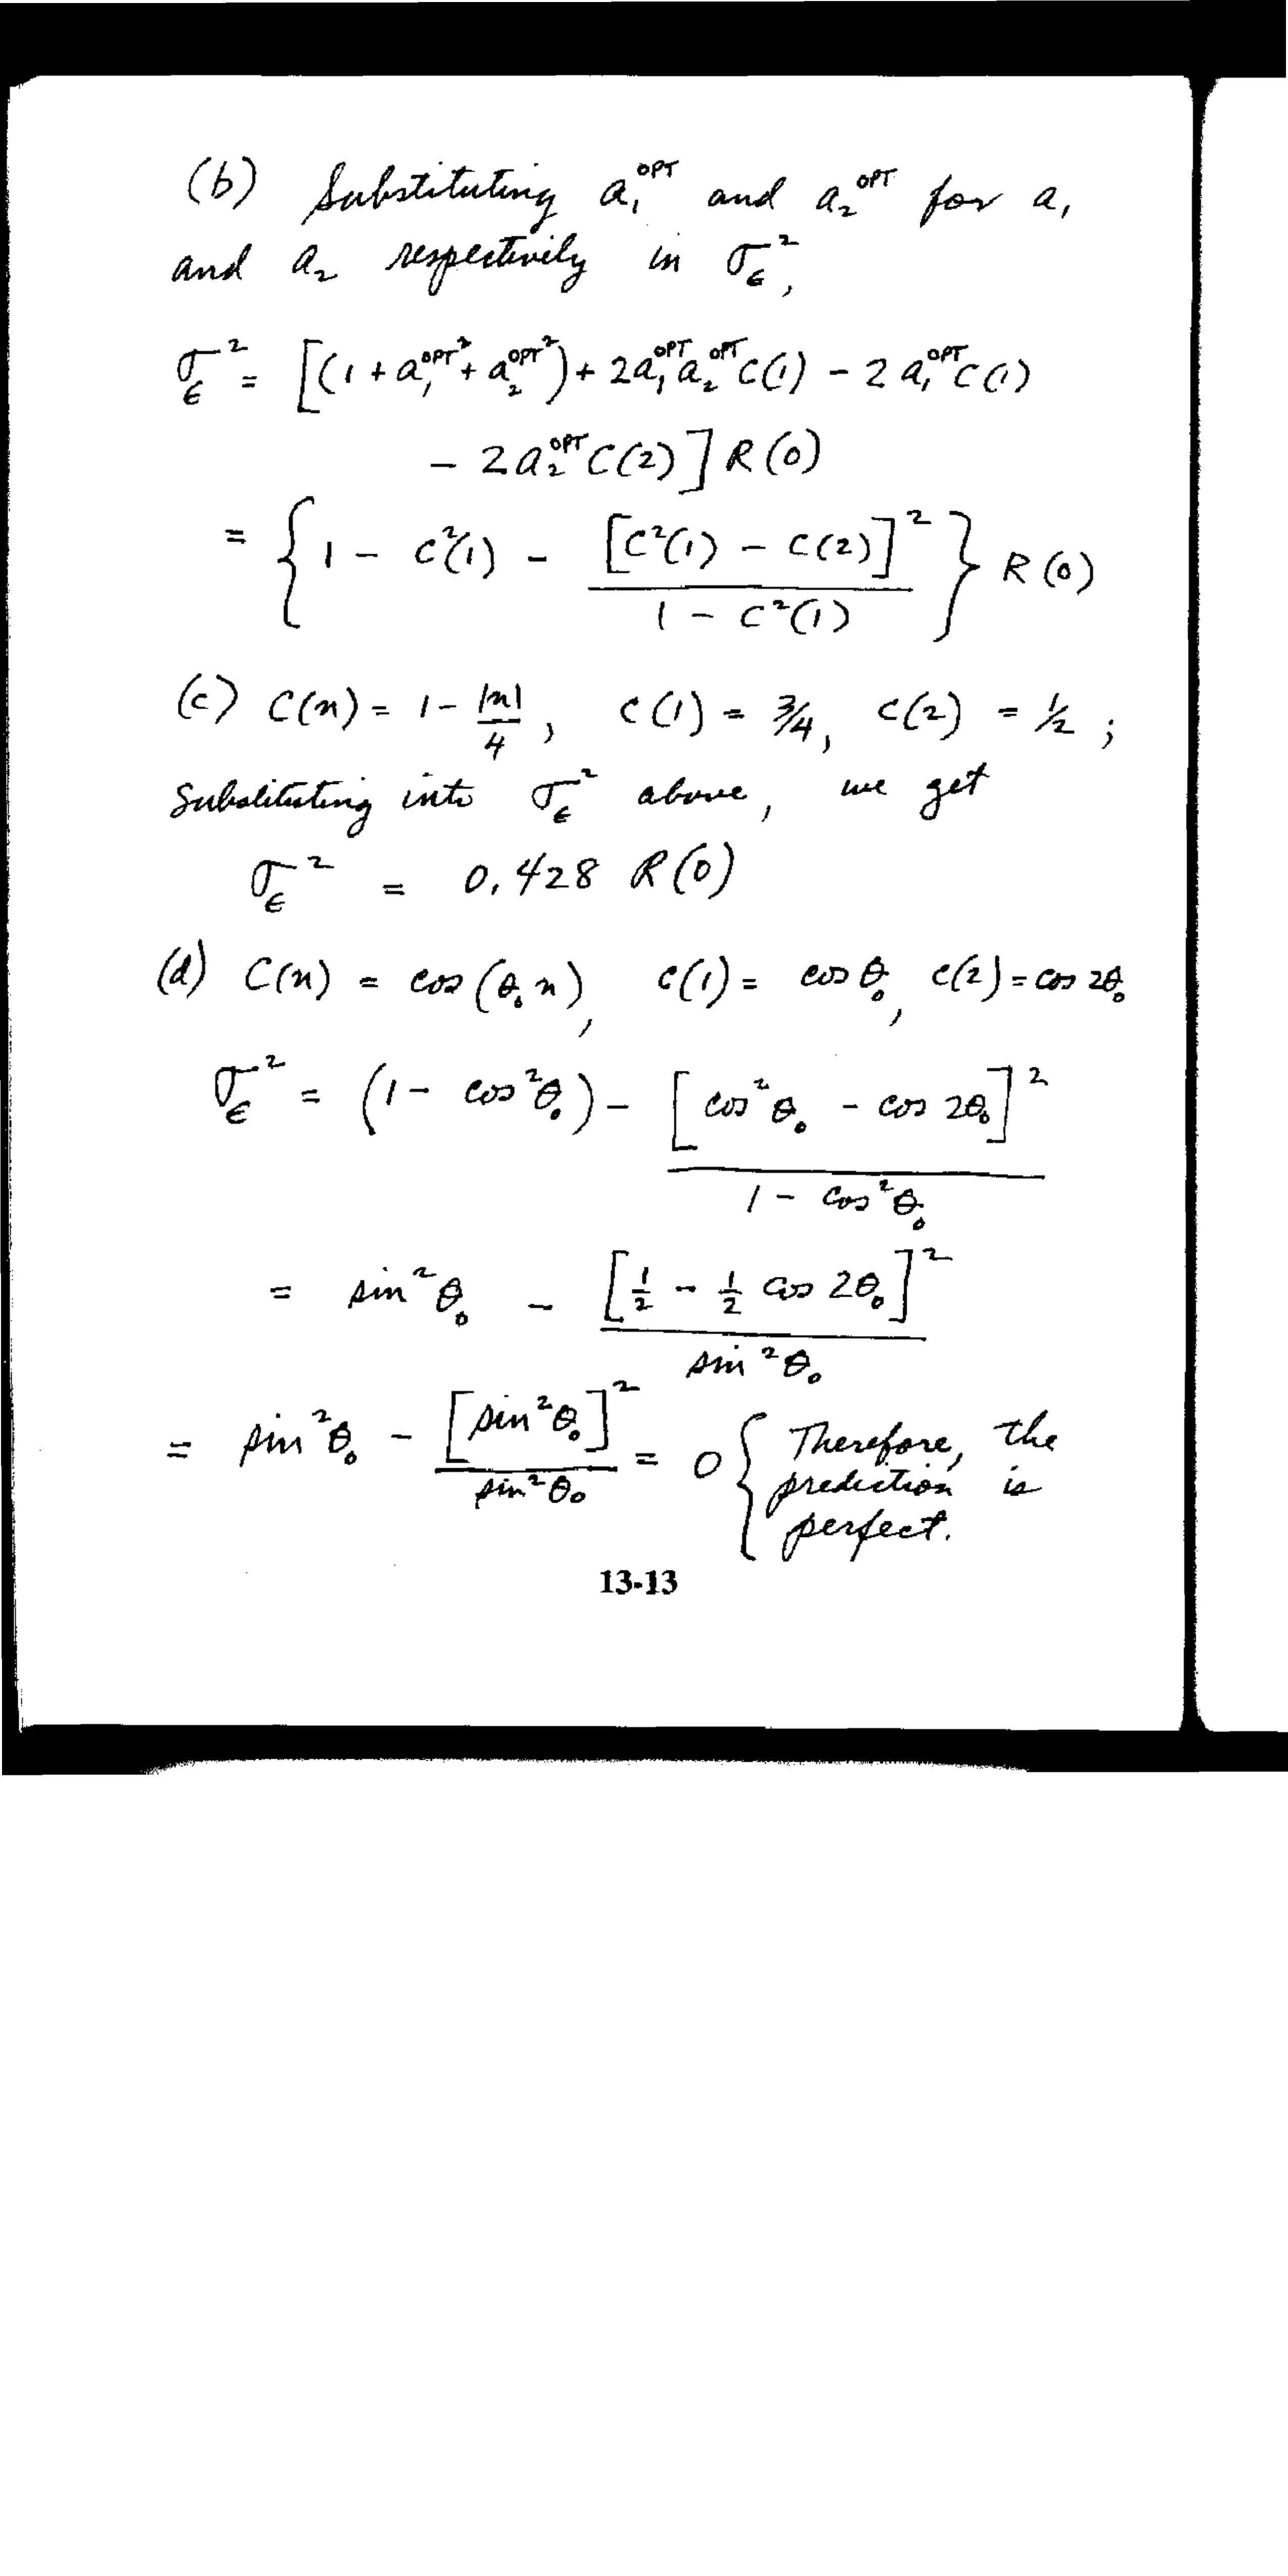 (b) Substituting a₁ᴼᴾᵀ and a₂ᴼᴾᵀ for a₁
and a₂ respectively in σ_ϵ²,
σ_ϵ² = [(1 + a₁ᴼᴾᵀ² + a₂ᴼᴾᵀ²) + 2a₁ᴼᴾᵀa₂ᴼᴾᵀC(1) - 2a₁ᴼᴾᵀC(1)
- 2a₂ᴼᴾᵀC(2)] R(0)
= {1 - C²(1) - [C²(1) - C(2)]² / (1 - C²(1))} R(0)
(c) C(n) = 1 - |n|/4, C(1) = 3/4, C(2) = 1/2;
Substituting into σ_ϵ² above, we get
σ_ϵ² = 0.428 R(0)
(d) C(n) = cos(θ₀n), C(1) = cos θ₀, C(2) = cos 2θ₀
σ_ϵ² = (1 - cos²θ₀) - [cos²θ₀ - cos 2θ₀]² / (1 - cos²θ₀)
= sin²θ₀ - [1/2 - 1/2 cos 2θ₀]² / sin²θ₀
= sin²θ₀ - [sin²θ₀]² / sin²θ₀ = 0 { Therefore, the
prediction is
perfect.
13-13